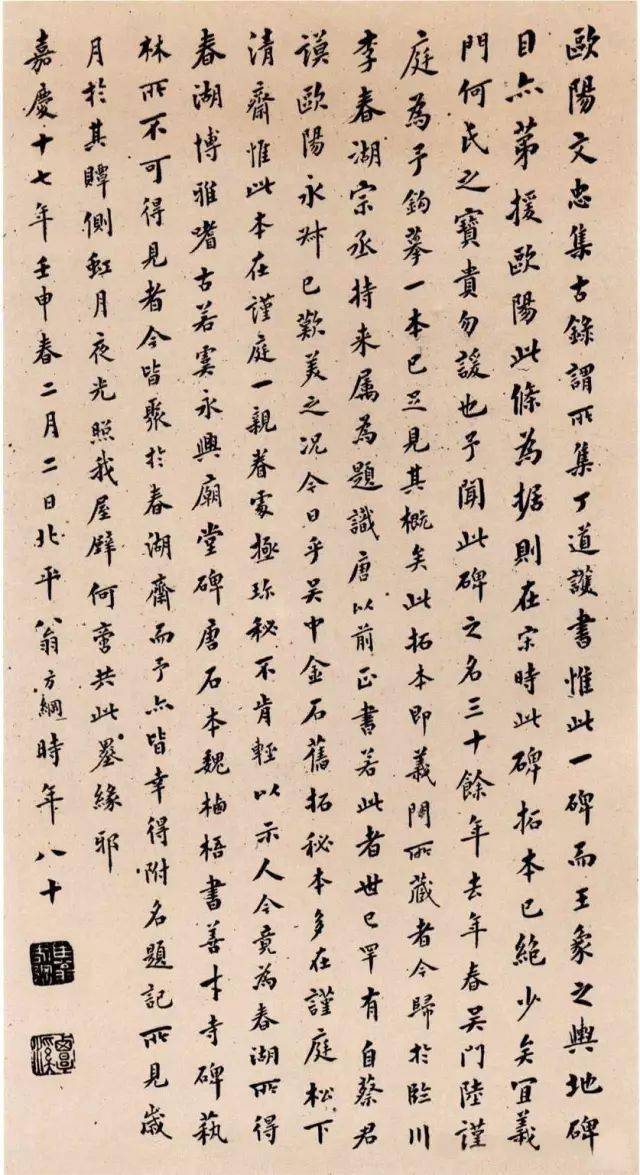 歐陽文忠集古錄謂所集丁道護書惟此一碑而王象之輿地碑
目亦第援歐陽此條為据則在宋時此碑拓本已絶少矣宜義
門何氏之寶貴勿諼也予聞此碑之名三十餘年去年春吴門陸謹
庭為予鈎摹一本已足見其概矣此拓本即義門所藏者今歸於臨川
李春湖宗丞持来属為題識唐以前正書若此者世已罕有自蔡君
謨歐陽永叔已歎美之况今日乎吴中金石舊拓秘本多在謹庭松下
清齋惟此本在謹庭一親眷處極珎秘不肯輕以示人今竟為春湖所得
春湖博雅嗜古若虞永興廟堂碑唐石本魏栖梧書善才寺碑蓺
林所不可得見者今皆聚於春湖齋而予亦皆幸得附名題記所見歲
月於其贉側虹月夜光照我屋壁何啻共此墨緣耶
嘉慶十七年壬申春二月二日北平翁方綱時年八十
覃溪